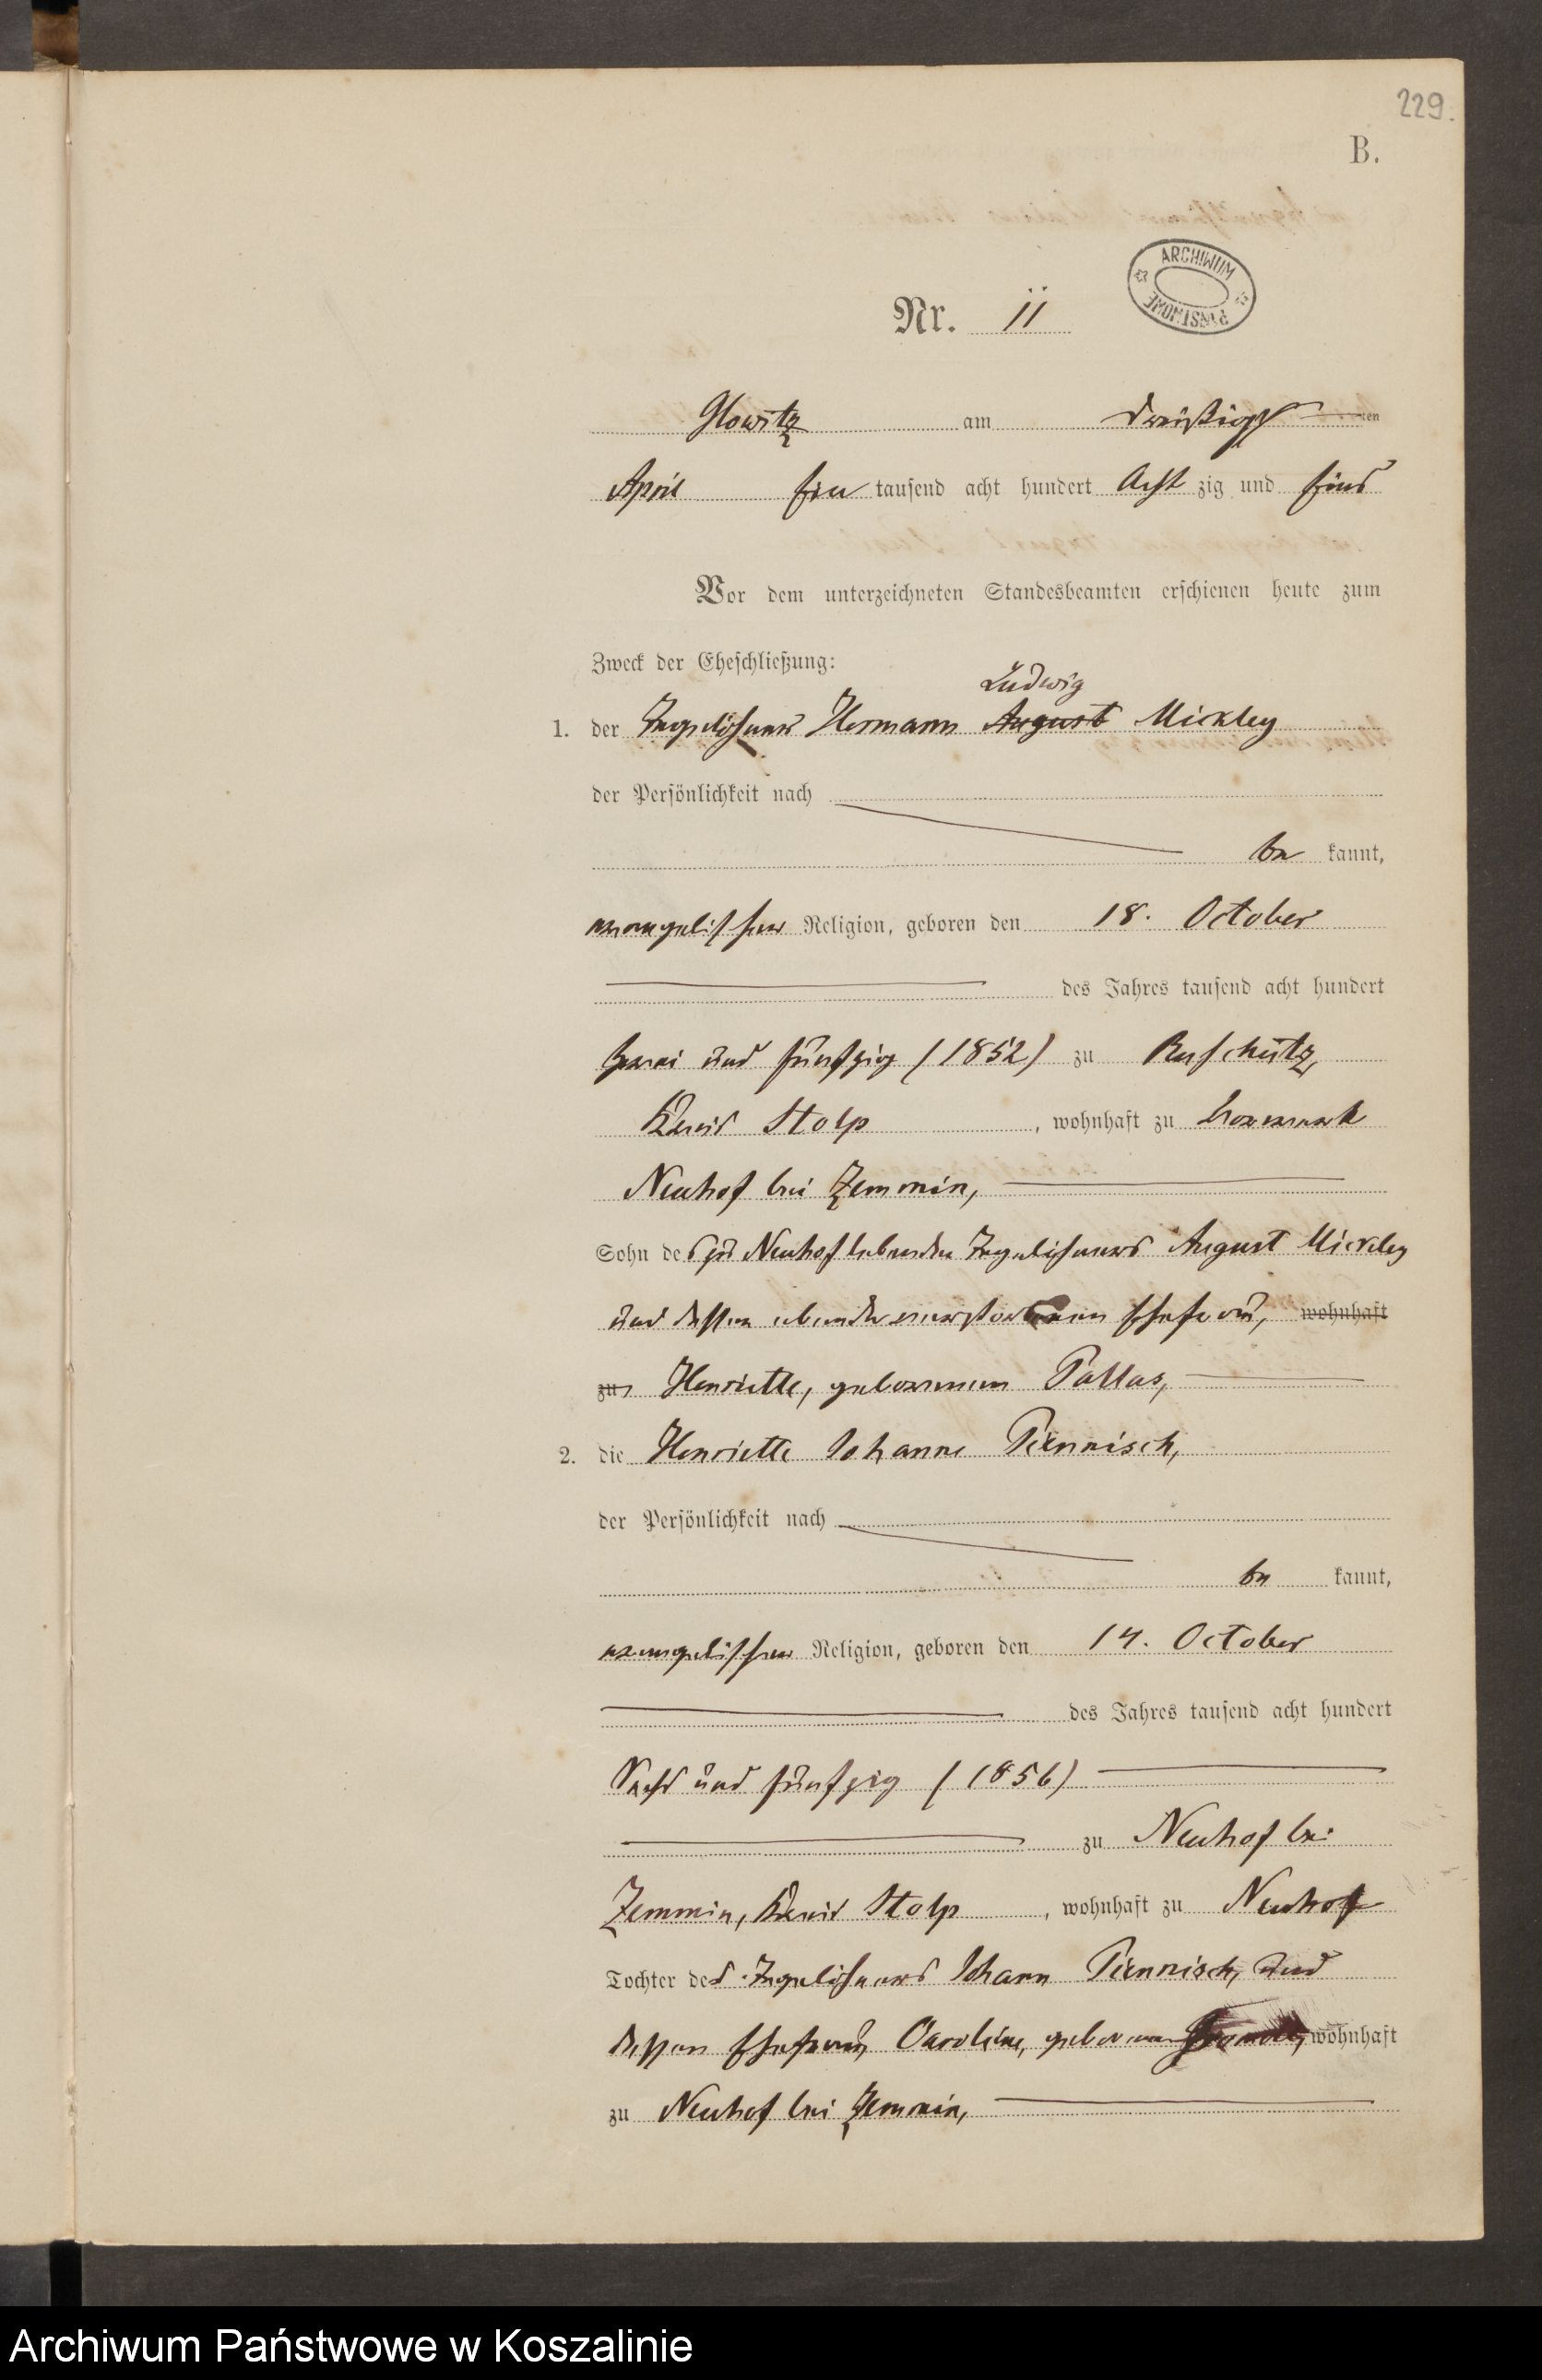 229.
B.
ARCHIWUM PAŃSTWOWE
Nr. 11
Glowitz am dreißigsten
April Ein tausend acht hundert Acht zig und Eins
Vor dem unterzeichneten Standesbeamten erschienen heute zum
Zweck der Eheschließung:
Ludwig
1. der Tagelöhner Hermann August Mickley
der Persönlichkeit nach
be kannt,
evangelischer Religion, geboren den 18. October
des Jahres tausend acht hundert
zwei und fünfzig (1852) zu Ruschütz,
Kreis Stolp, wohnhaft zu Vorwerk
Neuhof bei Zemmin,
Sohn des zu Neuhof lebenden Tagelöhners August Mickley
und dessen ebenda verstorbenen Ehefrau, wohnhaft
zu Henriette, geborenen Pallas,
2. die Henriette Johanne Piennisch,
der Persönlichkeit nach
be kannt,
evangelischer Religion, geboren den 14. October
des Jahres tausend acht hundert
Sechs und fünfzig (1856)
zu Neuhof bei
Zemmin, Kreis Stolp, wohnhaft zu Neuhof
Tochter des Tagelöhners Johann Piennisch, und
dessen Ehefrau, Caroline, geborenen wohnhaft
zu Neuhof bei Zemmin,
Archiwum Państwowe w Koszalinie